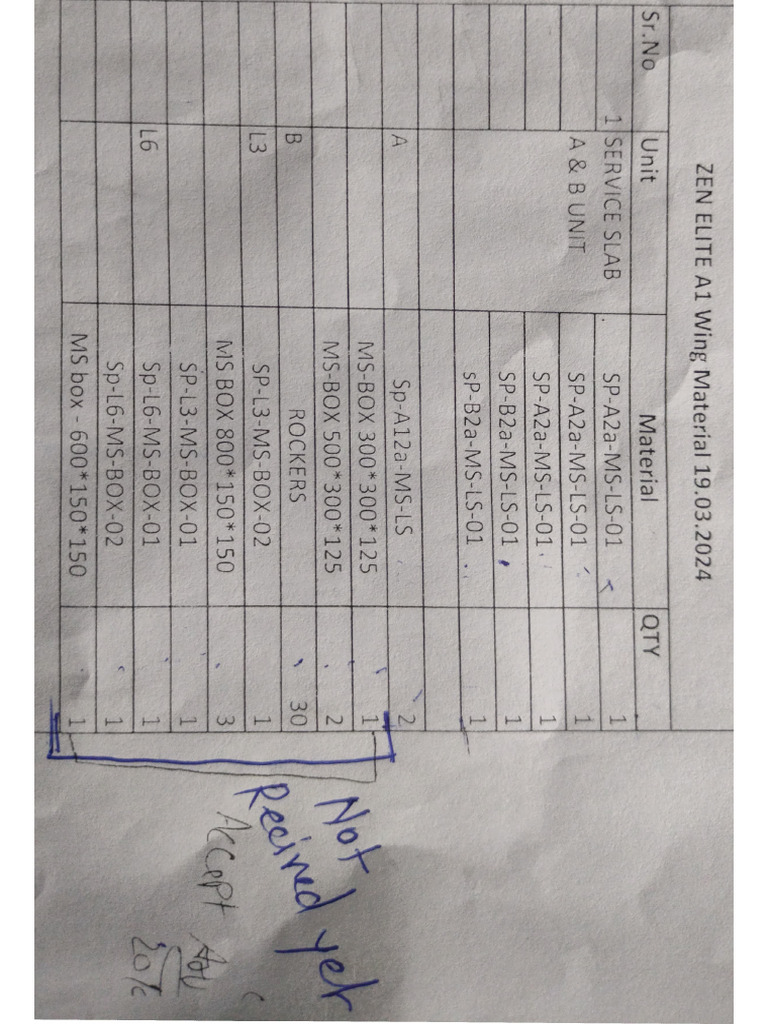 ZEN ELITE A1 Wing Material 19.03.2024
Sr.No Unit Material QTY
1 SERVICE SLAB SP-A2a-MS-LS-01 1
A & B UNIT SP-A2a-MS-LS-01 1
SP-A2a-MS-LS-01 1
SP-B2a-MS-LS-01 1
sP-B2a-MS-LS-01 1
A Sp-A12a-MS-LS 2
MS-BOX 300*300*125 1
MS-BOX 500*300*125 2
B ROCKERS 30
L3 SP-L3-MS-BOX-02 1
MS BOX 800*150*150 3
SP-L3-MS-BOX-01 1
L6 Sp-L6-MS-BOX-01 1
Sp-L6-MS-BOX-02 1
MS box - 600*150*150 1
Not
Recived yet
Accept